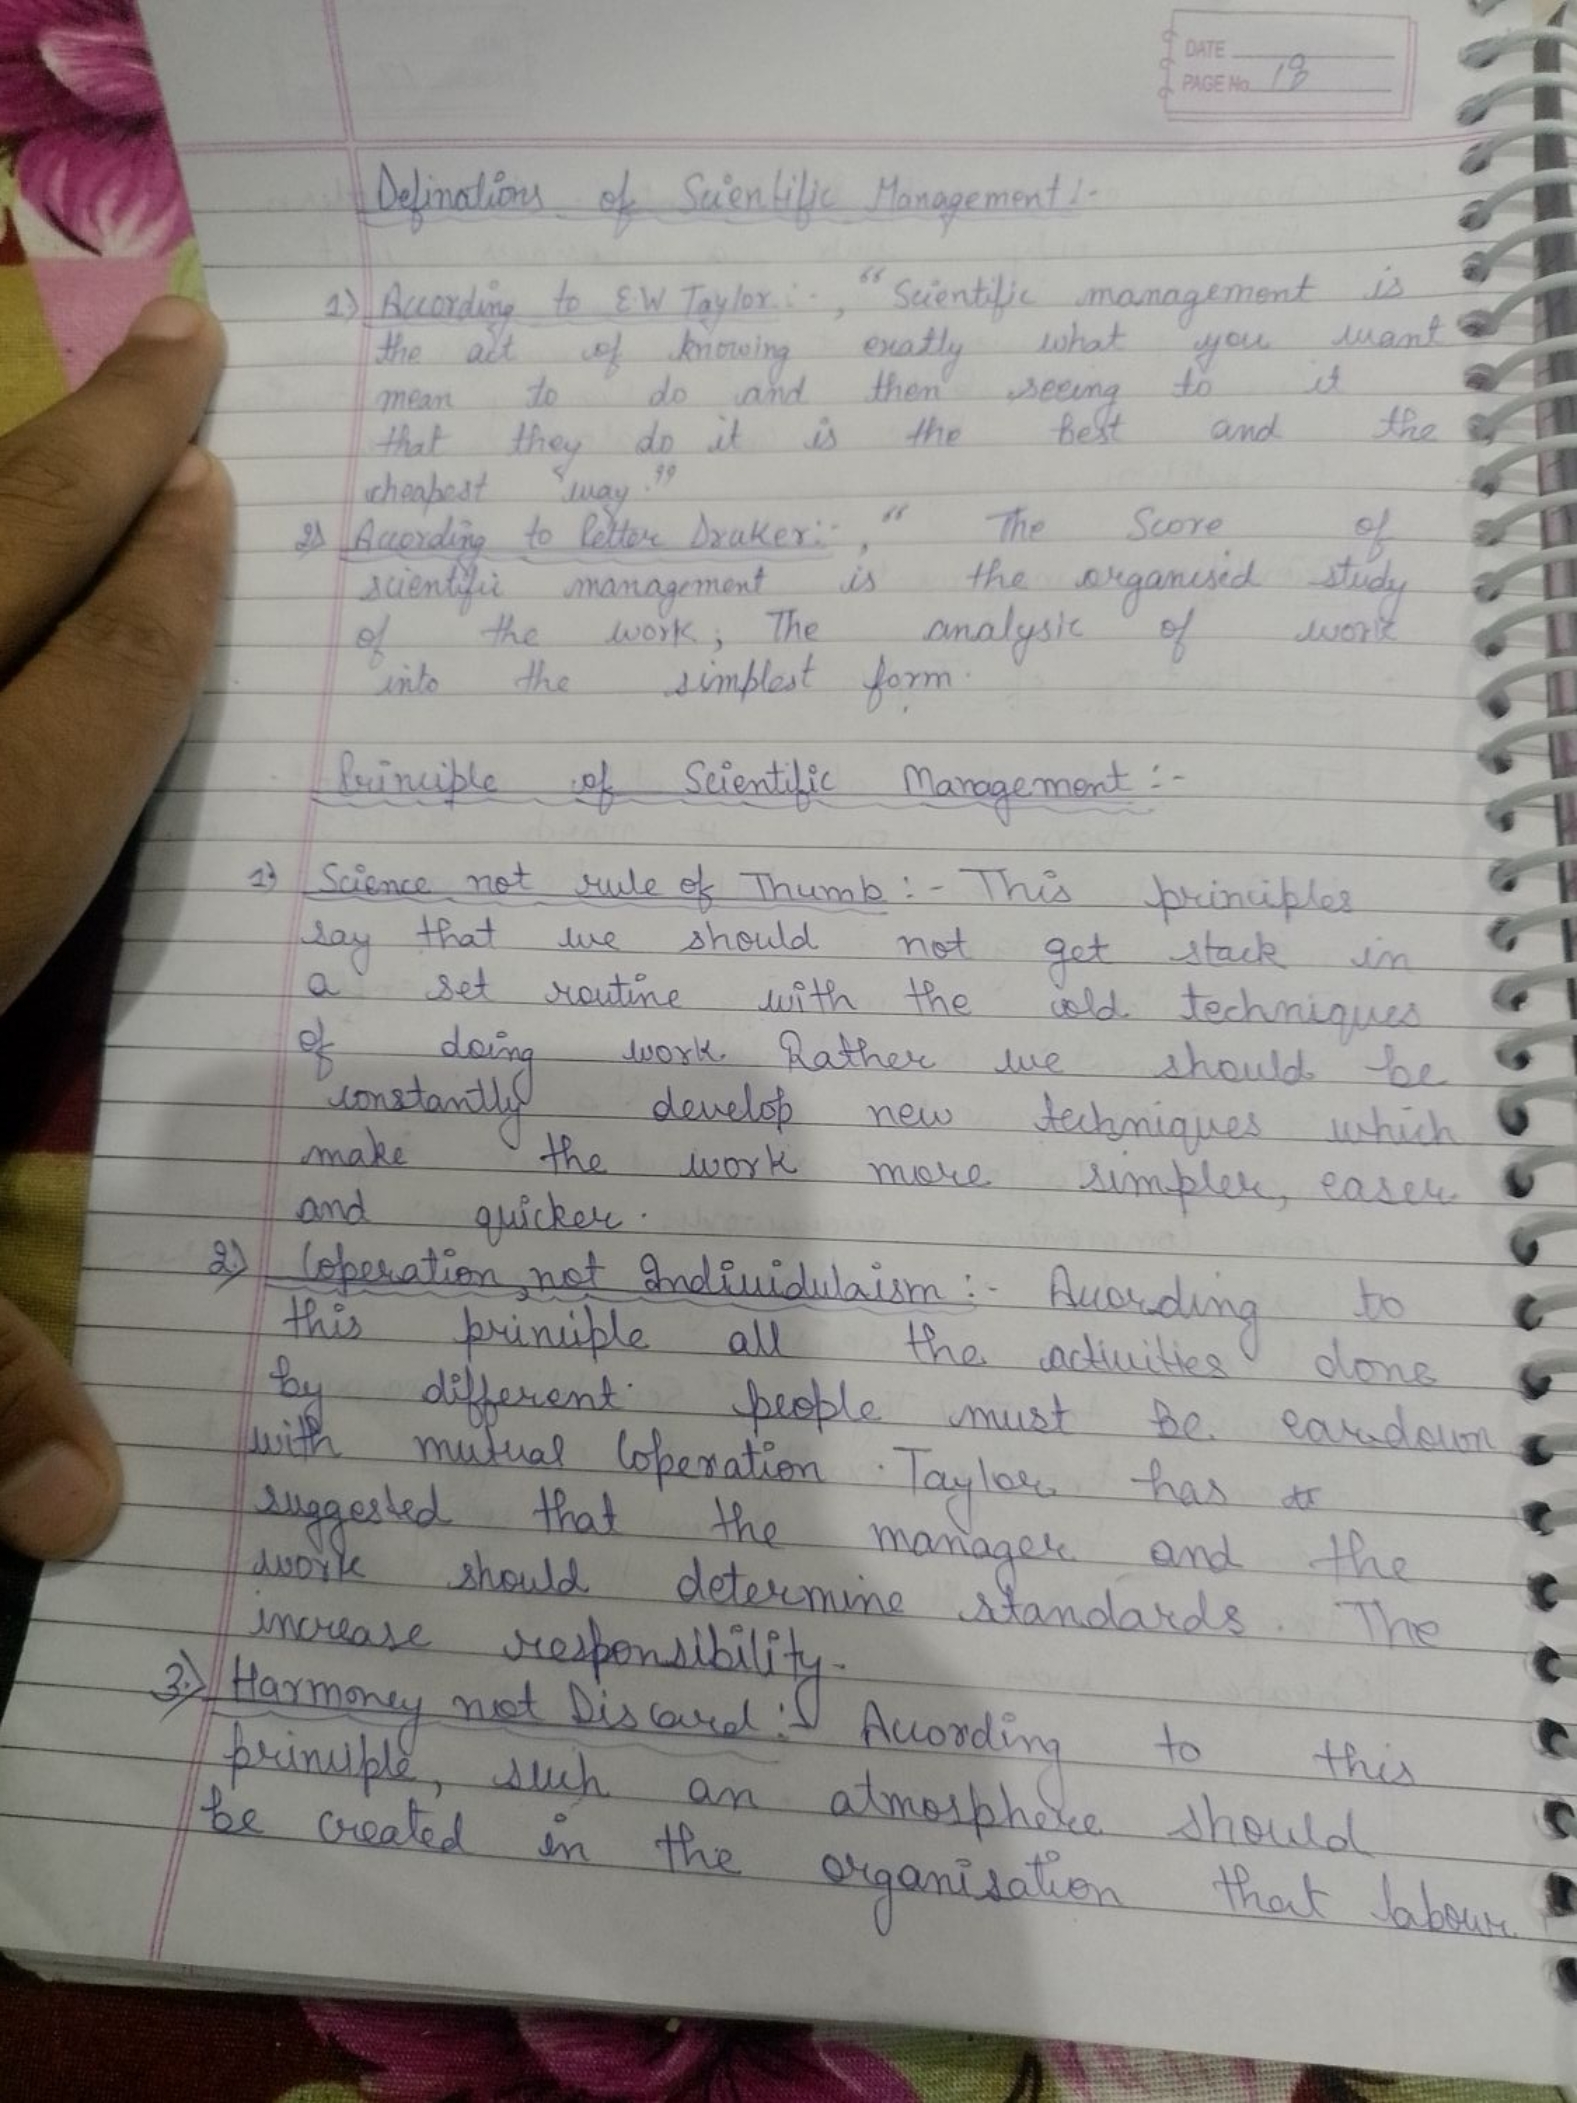 DATE
PAGE No. 18
Definations of Scientific Management:-
1) According to E.W Taylor:-, "Scientific management is
the act of knowing exatly what you want
mean to do and then seeing to it
that they do it is the best and the
cheapest "way."
2) According to Petter Druker:-, " The Score of
scientific management is the organised study
of the work; The analysic of work
into the simplest form.
Principle of Scientific Management:-
1) Science not rule of Thumb:- This principles
say that we should not get stack in
a set routine with the old techniques
of doing work. Rather we should be
constantly develop new techniques which
make the work more simpler, easer
and quicker.
2) Coperation, not Indiuidulaism:- According to
this principle all the activities done
by different people must be eardown
with mutual Coperation. Taylor has
suggested that the manager and the
work should determine standards. The
increase responsibility.
3.) Harmoney not Discard:- According to this
principle, such an atmosphere should
be created in the organisation that labour